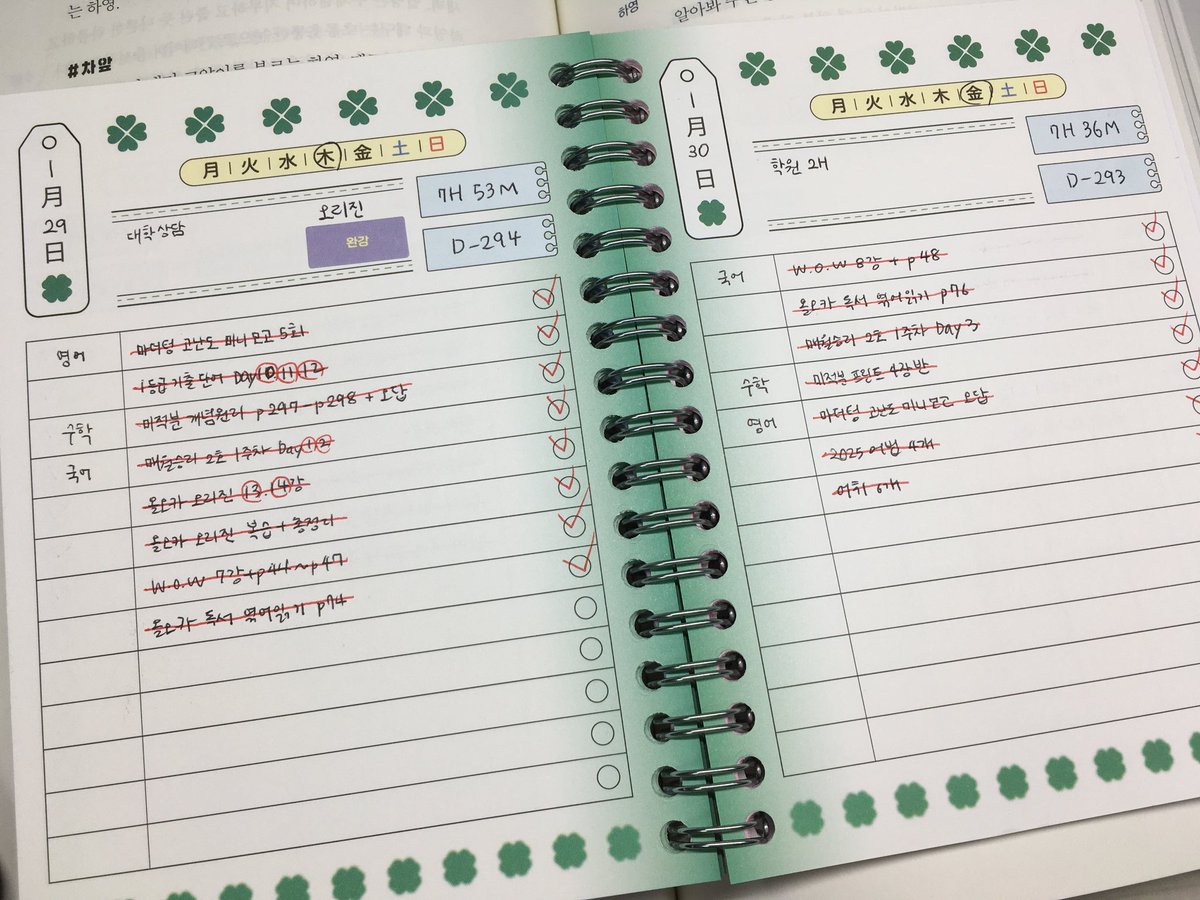 는 하영.
#차앞
하영
1月 29日
月 | 火 | 水 | 木 | 金 | 土 | 日
대학상담
오리진
완강
7H 53M
D-294
영어 마더텅 고난도 미니모고 5회
1등급 기출 단어 Day 10 11 12
수학 미적분 개념원리 p297-p298 + 오답
국어 매월승리 2호 1주차 Day 1 2
올오카 오리진 13. 14강
올오카 오리진 복습 + 총정리
W.O.W 7강 + p44~p47
올오카 독서 엮어읽기 p74
1月 30日
月 | 火 | 水 | 木 | 金 | 土 | 日
학원 2H
7H 36M
D-293
국어 W.O.W 8강 + p48
올오카 독서 엮어읽기 p76
매월승리 2호 1주차 Day 3
수학 미적분 프린트 4장반
영어 마더텅 고난도 미니모고 오답
2025 어법 4개
어휘 6개